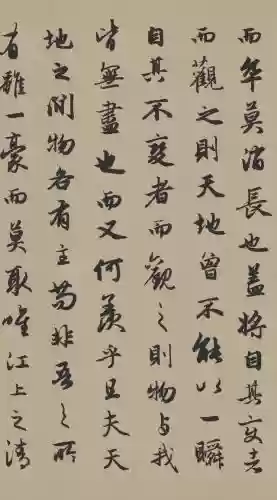 而卒莫消長也蓋將自其变者
而觀之則天地曾不能以一瞬
自其不變者而觀之則物与我
皆無盡也而又何羨乎且夫天
地之間物各有主苟非吾之所
有雖一豪而莫取唯江上之清